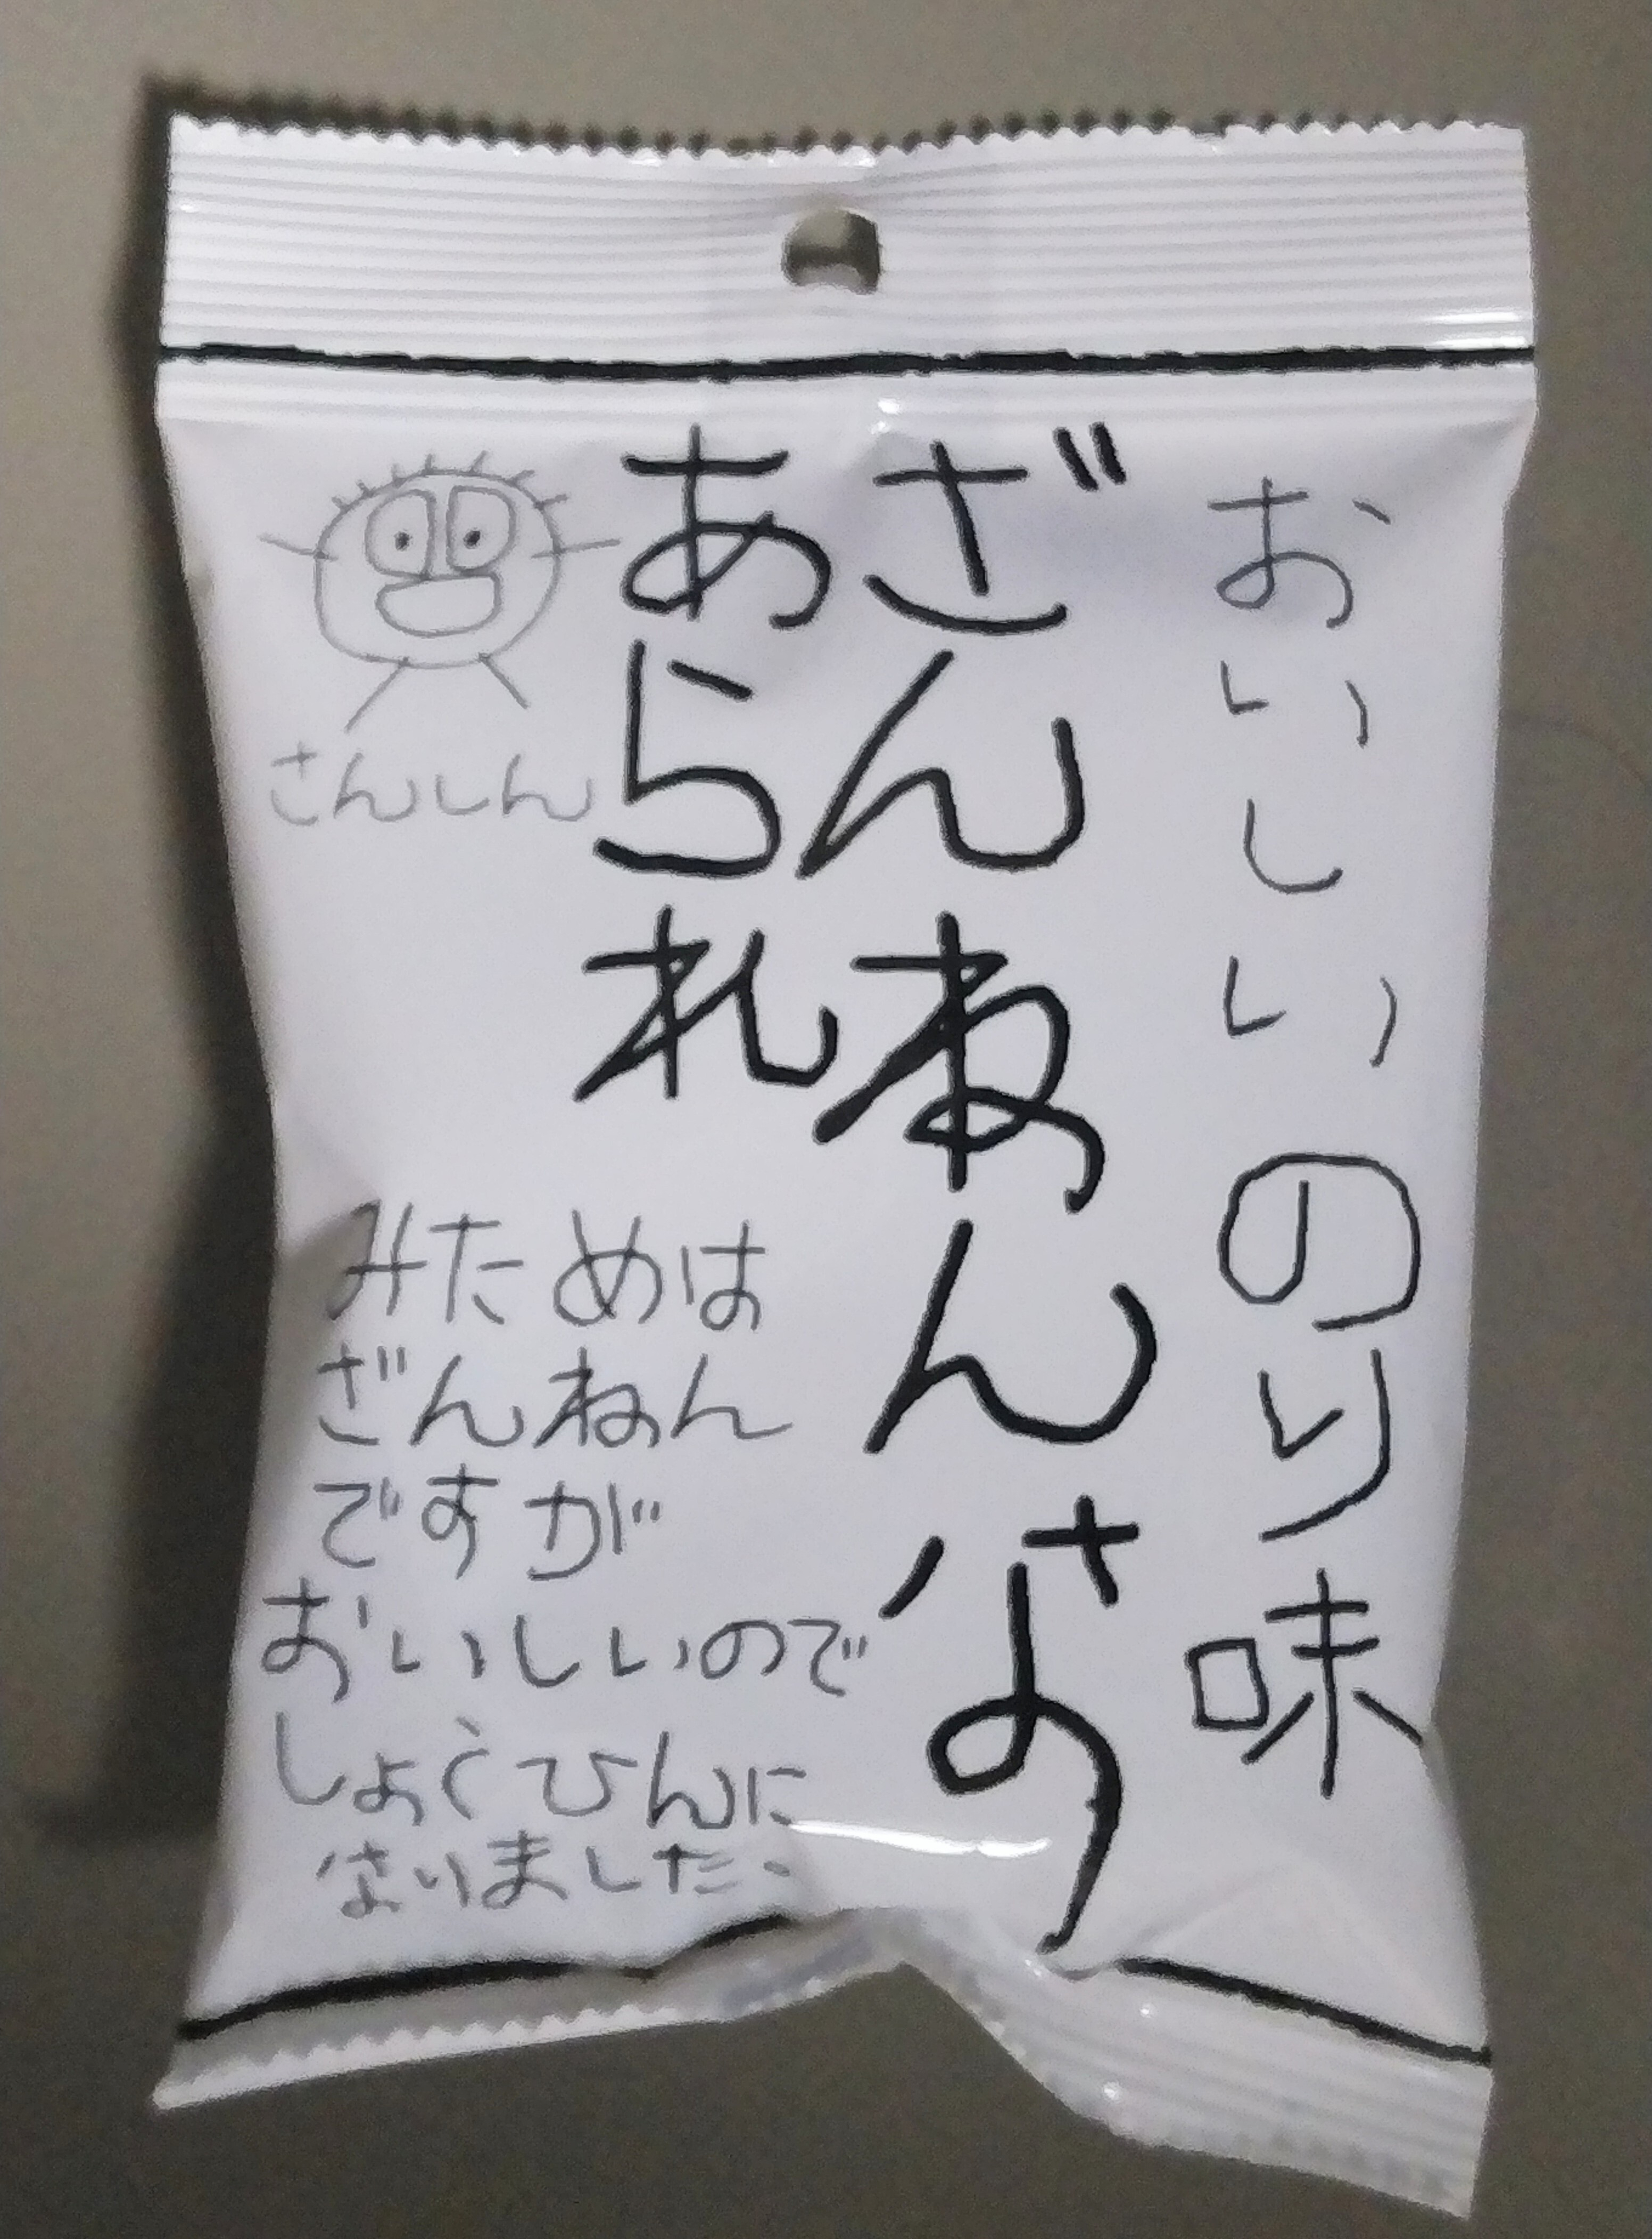 おいしい のり味
ざんねんな
あられ
さんしん
みためは
ざんねん
ですが
おいしいので
しょうひんに
なりました。